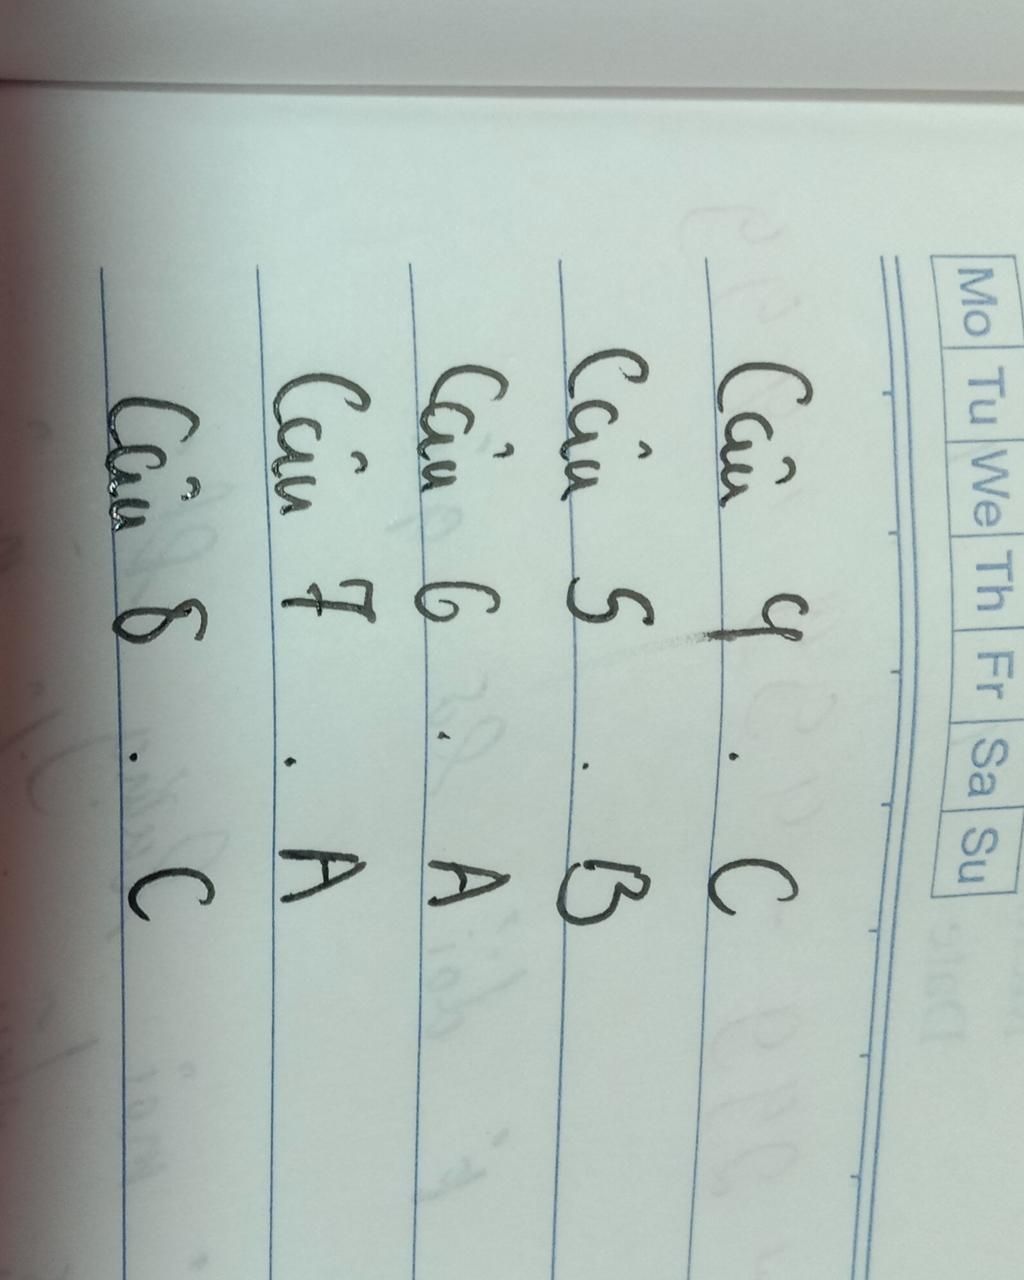 Mo Tu We Th Fr Sa Su
Câu 4 . C
Câu 5 . B
Câu 6 . A
Câu 7 . A
Câu 8 . C